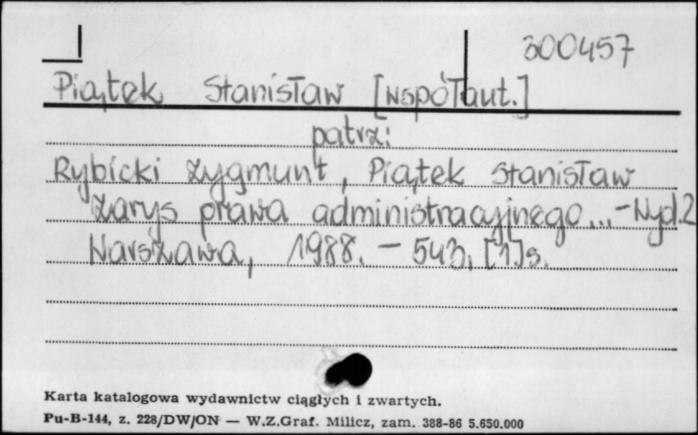 300457
Piątek Stanisław [współaut.]
patrz:
Rybicki Zygmunt, Piątek Stanisław
Zarys prawa administracyjnego...-Wyd.2
Warszawa, 1988. - 543, [1]s.
Karta katalogowa wydawnictw ciągłych i zwartych.
Pu-B-144, z. 228/DW/ON — W.Z.Graf. Milicz, zam. 388-86 5.650.000